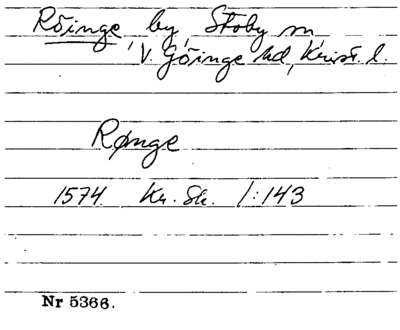 Röinge, by, Stoby sn
V. Göinge hd, Krist. l.
Rønge
1574 Kr. Sk. 1:143
Nr 5366.